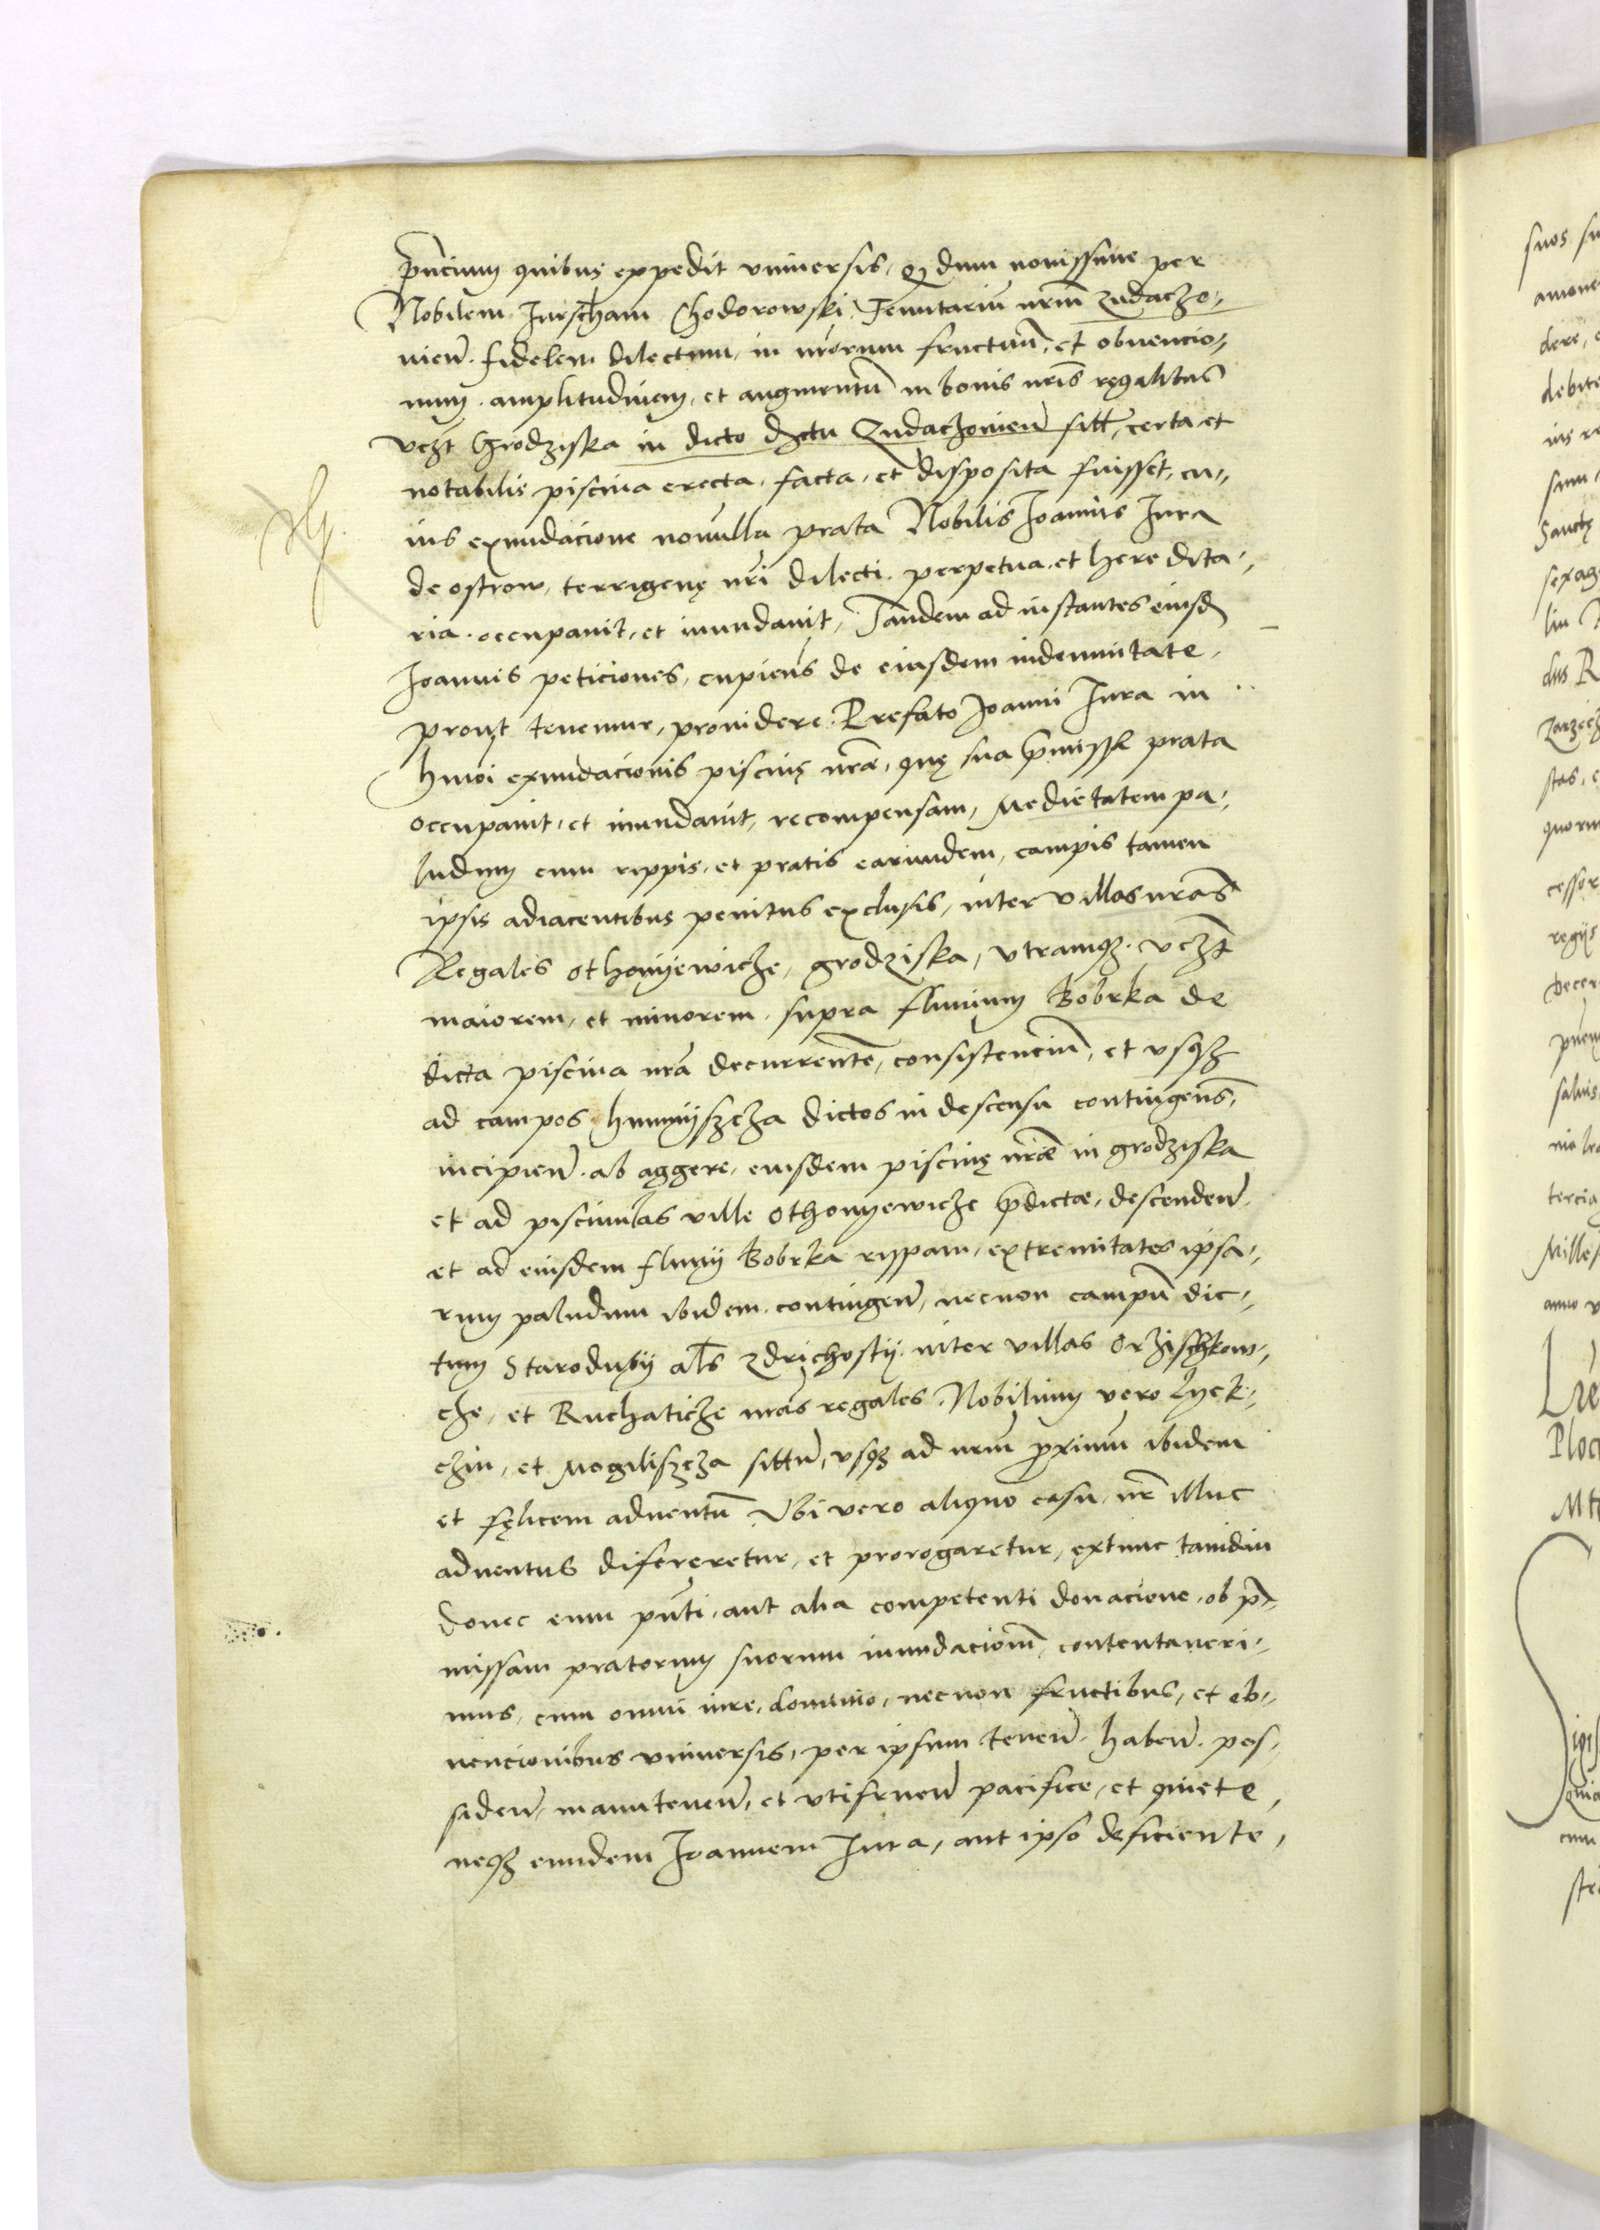 pñcium quibus expedit vniuersis, Q dum nouissime per
Nobilem Jurscham Chodorowski Tenutarium nrm̄ Zudaczo-
uien̄. fidelem dilectum, in nrorum fructuum, et obuencio-
num. amplitudinem, et augmentū in bonis nrīs regalibus
vczt Grodziska in dicto dctu Zudaczouien̄ sitt, certa et
notabilis piscina erecta, facta, et disposita fuisset, cu-
ius exundacione nonnulla prata Nobilis Joannis Jura
de ostrow, terrigenę nrī dilecti. perpetua, et heredita-
ria. occupauit, et inundauit, Tandem ad instantes eiusd
Joannis peticiones, cupiens de eiusdem indemnitate,
prout tenemur, prouidere. Prefato Joanni Jura in
hmoi exundacionis piscinę nrae, quę sua p̄miss̄ prata
occupauit, et inundauit, recompensam, Medietatem pa-
ludum cum rippis, et pratis earundem, campis tamen
ipsis adiacentibus penitus exclusis, inter villas nrās
Regales othonyewicze, grodziska, vtramqz. vczt
maiorem, et minorem, supra fluuium Bobrka de
dicta piscina nrā decurrentē, consistenciū, et vsqz
ad campos humnyszcza dictos in descensu contingens,
incipien̄. ab aggere, eiusdem piscinę nrae in grodziska
et ad piscinulas ville othonyewicze p̄dictae, descenden̄.
et ad eiusdem fluuij Bobrka ryppam, extremitates ipsa-
rum paludum ibidem, contingen̄, necnon campū dic-
tum Starodubij als̄ Zdrichostij inter villas Orzischkow-
cze, et Ruchaticze nrās regales, Nobilium vero Lyck-
czin, et Mogiliszcza sittū, vsqz ad nrum proximū ibidem
et fęlicem aduentū Vbi vero aliquo casu, nr̄ illuc
aduentus difereretur, et prorogaretur, extunc tamdiu
donec eum pn̄ti, aut alia competenti donacione, ob p̄-
missam pratorum suorum inundacionē, contentaueri-
mus, cum omni iure, dominio, necnon fructibus, et ob-
uencionibus vniuersis, per ipsum tenen̄. haben̄. pos-
siden̄, manutenen̄, et vtifruen̄ pacifice, et quiete,
neqz eundem Joannem Jura, aut ipso deficiente,